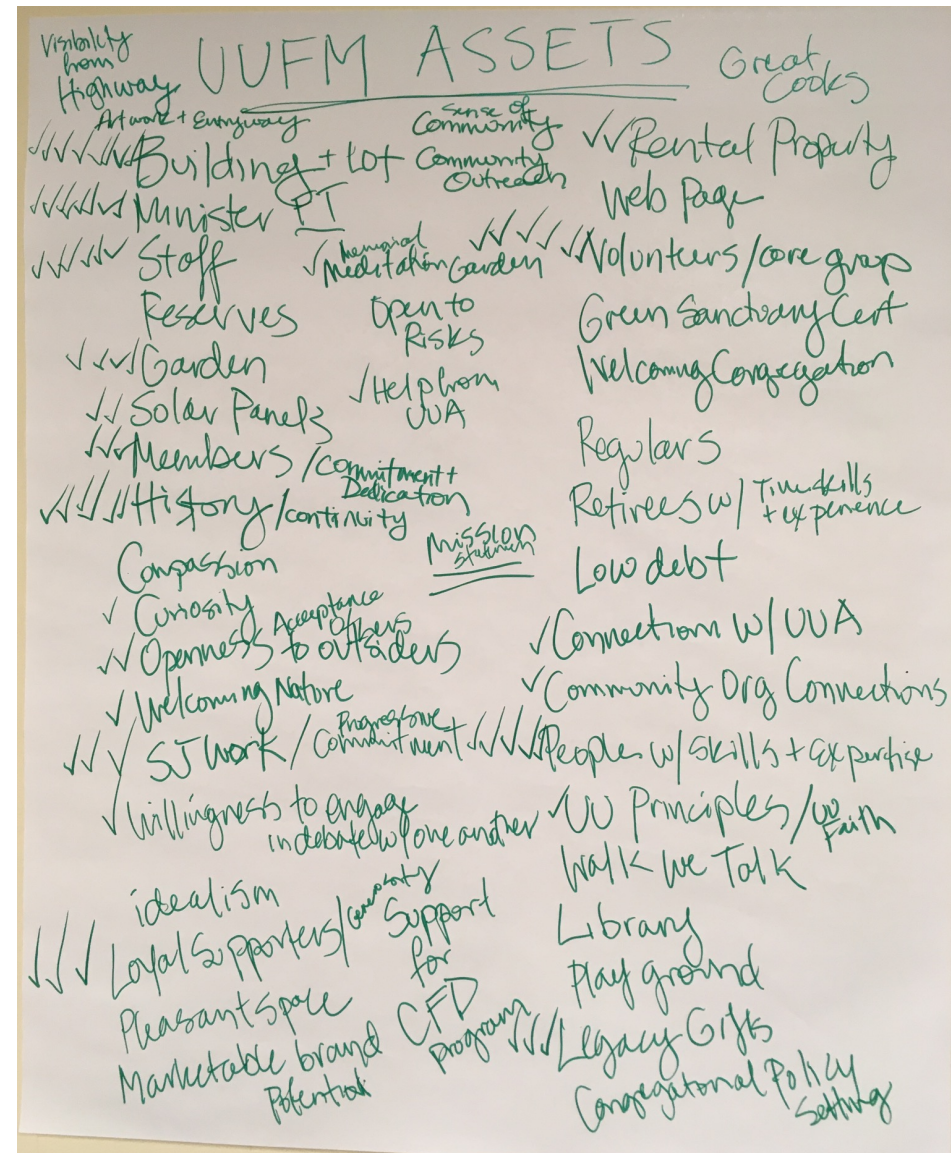 Visibility
from
Highway
UUFM ASSETS
Great
Cooks
Artwork + Entryway
✓✓✓✓✓✓ Building + Lot
✓✓✓✓✓✓ Minister PT
✓✓✓✓✓ Staff
Reserves
✓✓✓ Garden
✓✓ Solar Panels
✓✓✓ Members / Commitment +
Dedication
✓✓✓✓✓ History / continuity
Compassion
✓ Curiosity
Acceptance
Others
✓✓ Openness to outsiders
✓ Welcoming Nature
✓✓✓ SJ Work / Progressive
Commitment
✓ Willingness to engage
in debate w/ one another
idealism
✓✓✓ Loyal Supporters / Generosity
Pleasant space
Marketable brand
Potential
Sense of
Community
Community
Outreach
✓ Memorial
Meditation Garden
Open to
Risks
✓ Help from
UUA
Mission
Statement
Support
for
CFD
Program
✓✓ Rental Property
Web Page
✓✓✓✓✓ Volunteers / core group
Green Sanctuary Cert
Welcoming Congregation
Regulars
Retirees w/ Time skills
+ experience
Low debt
✓ Connection w/ UUA
✓ Community Org Connections
✓✓✓✓ Peoples w/ skills + expertise
✓ UU Principles / UU
Faith
Walk We Talk
Library
Play ground
✓✓✓ Legacy Gifts
Congregatonal Policy
Setting